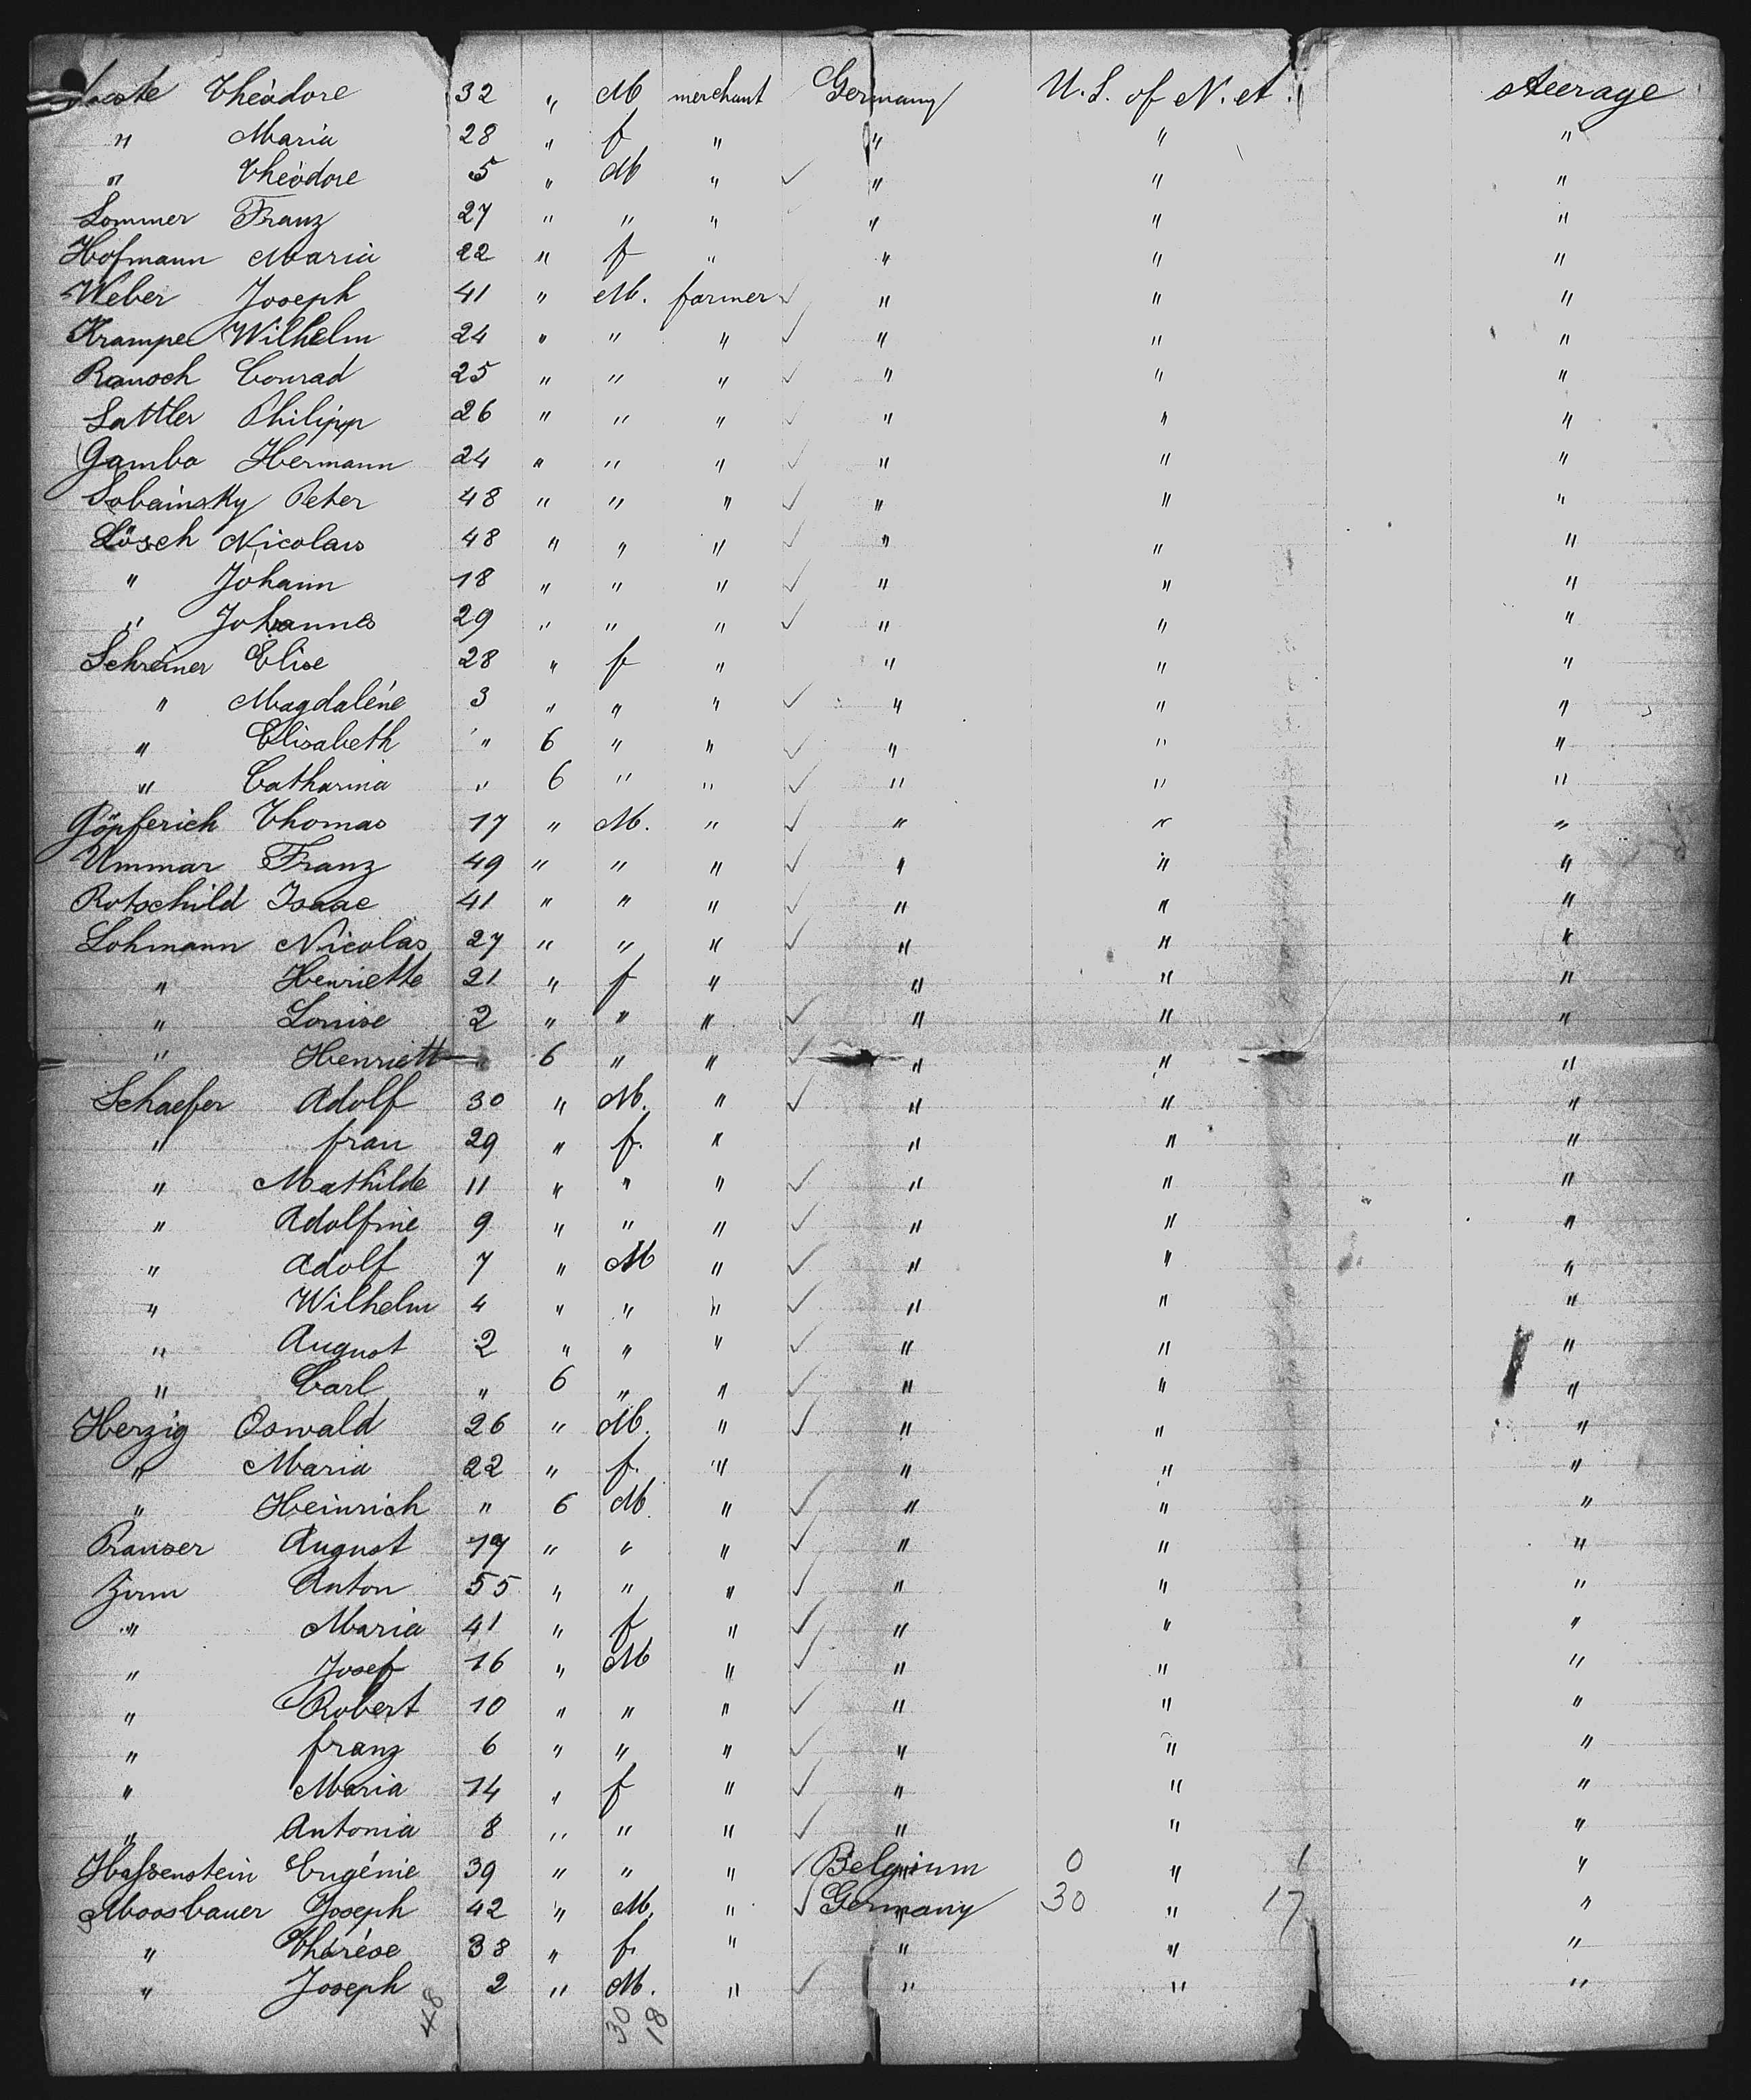 Jooste Théodore 32 " M merchant Germany U.S. of N.A. steerage
" Maria 28 " f " " " "
" Théodore 5 " M " ✓ " " "
Sommer Franz 27 " " " " " "
Hofmann Maria 22 " f " " " "
Weber Joseph 41 " M. farmer ✓ " " "
Krampe Wilhelm 24 " " " ✓ " " "
Rausch Conrad 25 " " " ✓ " " "
Sattler Philipp 26 " " " ✓ " " "
Gamba Hermann 24 " " " ✓ " " "
Sobainsky Peter 48 " " " ✓ " " "
Lösch Nicolaus 48 " " " ✓ " " "
" Johann 18 " " " ✓ " " "
" Johannes 29 " " " ✓ " " "
Schreiner Elise 28 " f " " " "
" Magdaléne 3 " " " ✓ " " "
" Elisabeth " 6 " " ✓ " " "
" Catharina " 6 " " ✓ " " "
Göpferich Thomas 17 " M. " ✓ " " "
Ummar Franz 49 " " " ✓ " " "
Rotschild Isaac 41 " " " ✓ " " "
Lohmann Nicolas 27 " " " ✓ " " "
" Henriette 21 " f " " " "
" Louise 2 " " " ✓ " " "
" Henriett " 6 " " ✓ " " "
Schaefer Adolf 30 " M. " ✓ " " "
" frau 29 " f. " " " "
" Mathilde 11 " " " ✓ " " "
" Adolfine 9 " " " ✓ " " "
" Adolf 7 " M " ✓ " " "
" Wilhelm 4 " " " ✓ " " "
" August 2 " " " ✓ " " "
" Carl " 6 " " ✓ " " "
Herzig Oswald 26 " M. " ✓ " " "
" Maria 22 " f. " " " "
" Heinrich " 6 M. " ✓ " " "
Prauser August 19 " " " ✓ " " "
Zirm Anton 55 " " " ✓ " " "
" Maria 41 " f " ✓ " " "
" Josef 16 " M " ✓ " " "
" Robert 10 " " " ✓ " " "
" franz 6 " " " ✓ " " "
" Maria 14 " f " ✓ " " "
" Antonia 8 " " " ✓ " " "
Hassenstein Eugénie 39 " " " ✓ Belgium 0 " 1 "
Moosbauer Joseph 42 " M. " ✓ Germany 30 " 17 "
" Thérése 38 " f. " " " "
" Joseph 2 " M. " ✓ " " "
48 30 18